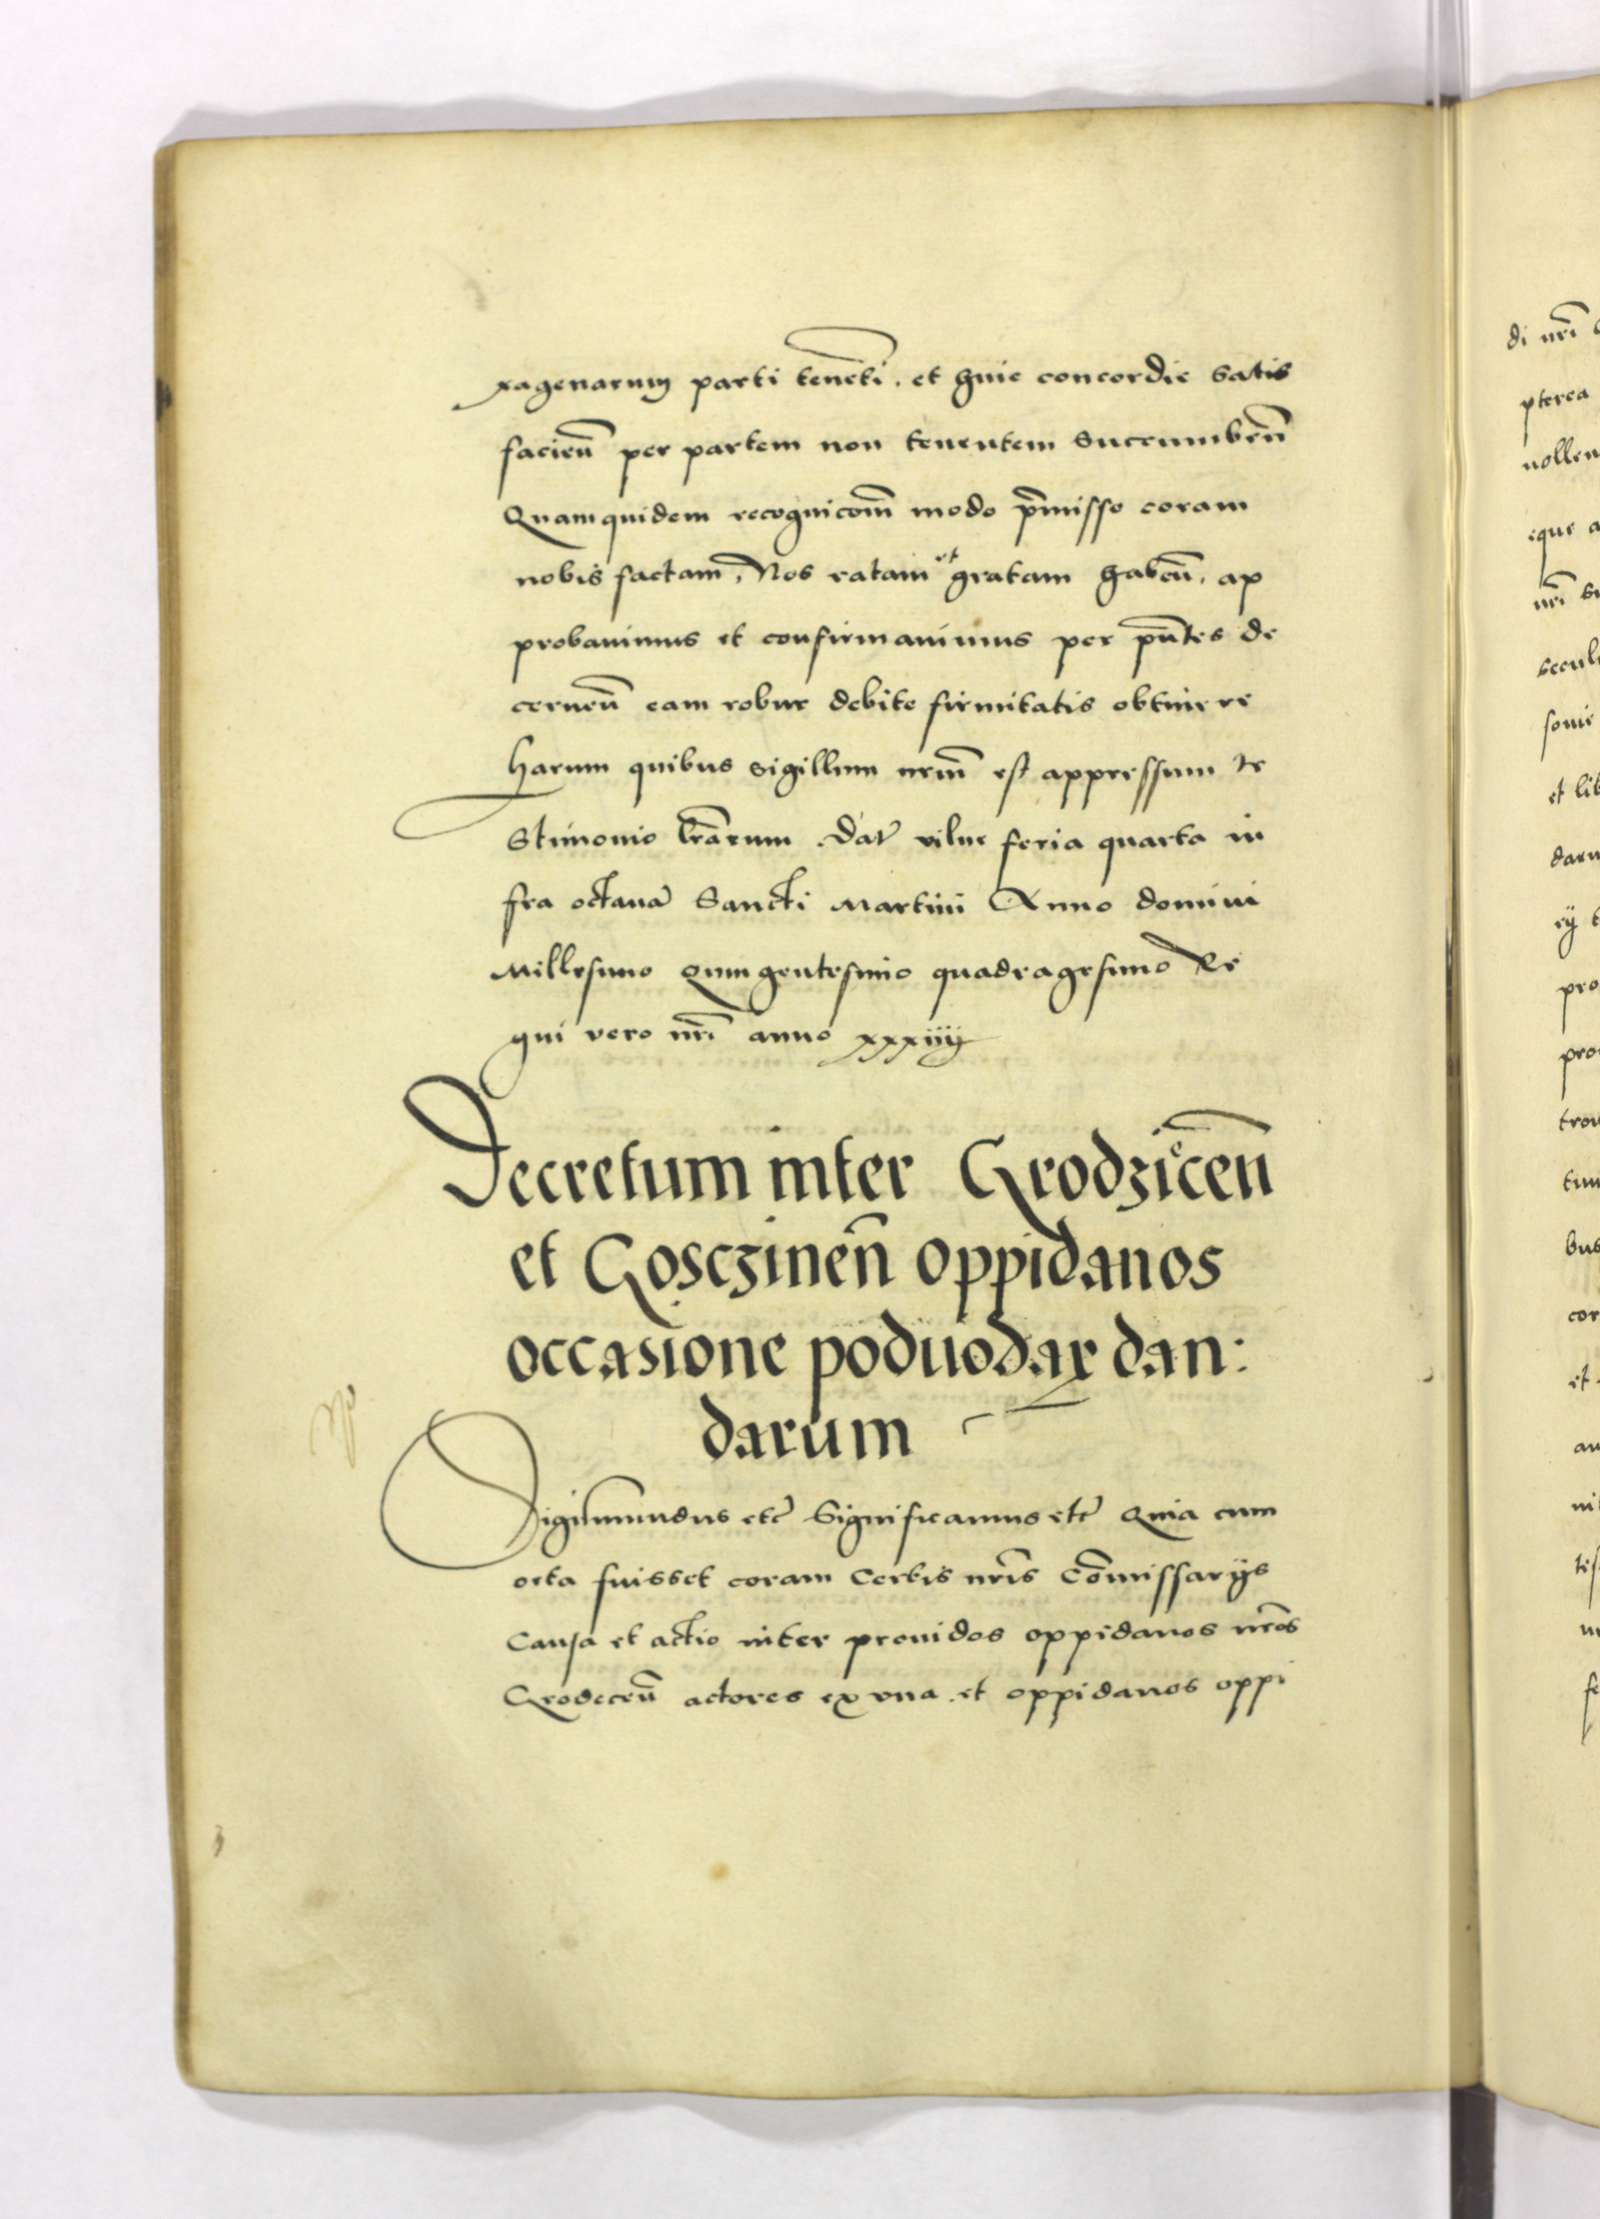 xagenarum parti teneti. et huic concordie satis
facien̄ per partem non tenentem succumben̄
Quamquidem recognicom̄ modo p̄misso coram
nobis factam, Nos ratam et gratam haben̄. ap
probavimus et confirmavimus per pn̄tes de
cernen̄ eam robur debite firmitatis obtinere
Harum quibus sigillum nrm̄ est appressum te
stimonio lr̄arum. Dat̄ vilne feria quarta in
fra octavā Sancti Martini Anno domini
Millesimo Quingentesimo quadragesimo Re
gni vero nr̄i anno xxxiiij
Decretum inter Grodzicen̄
et Gosczinen̄ oppidanos
occasione poduodaꝝ dan:
darum
Sigismundus etc̄ Significamus etc̄ Quia cum
orta fuisset coram Certis nr̄is Com̄issarijs
Causa et actio inter providos oppidanos nr̄os
Grodecen̄ actores ex vna. et oppidanos oppi
di nr̄i
pterea
nollen
eque a
nr̄i su
secul
sonie
et lib
daru
ey t
pro
pro
tron
tim
bus
cor
et
au
ni
tes